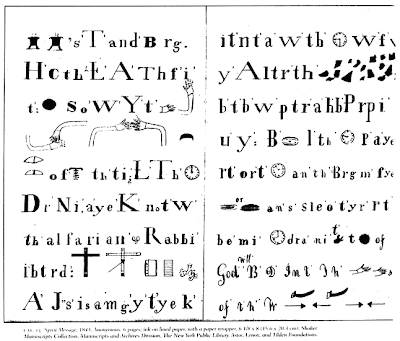 's T and B r g.
H o t h E A T h f i
t: s o w Y t
o f T th ti; L T h
D r N i, a y e K n o t w
th a l f a r i a n Rabbi
i b t r d :
A J's is a m g, y t y e k
i t n t a w t h w f
y A l t r t h
b t b w p t r a h b P r p i
u y: B l 't h P a y e
r t o r t a n t h B r g m f y e
or a n s s l e o t y r r t
b e m i d r a n i t t of
will
God B D I m t I h
of
Spirit Message, 1843. Anonymous. 6 pages; ink on lined paper, with a paper wrapper, 6 1/8 x 8 (15.6 x 20.3 cm). Shaker
Manuscripts Collection, Manuscripts and Archives Division, The New York Public Library, Astor, Lenox, and Tilden Foundations.